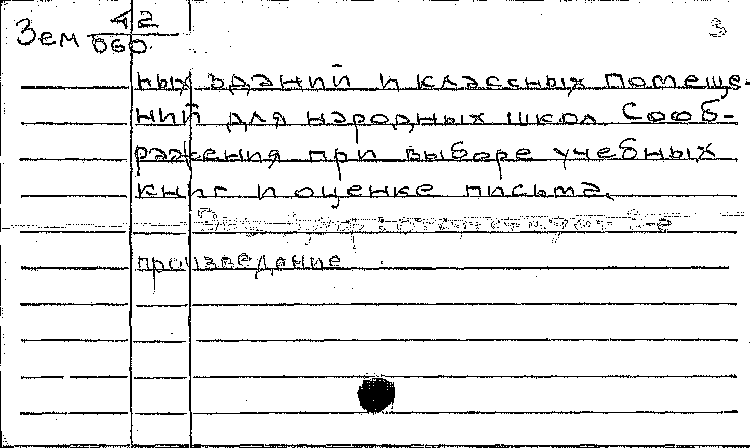 Зем 42
060
3
ных зданий и классных помеще-
ний для народных школ. Сооб-
ражения при выборе учебных
книг и оценке письма.
2-е
произведение